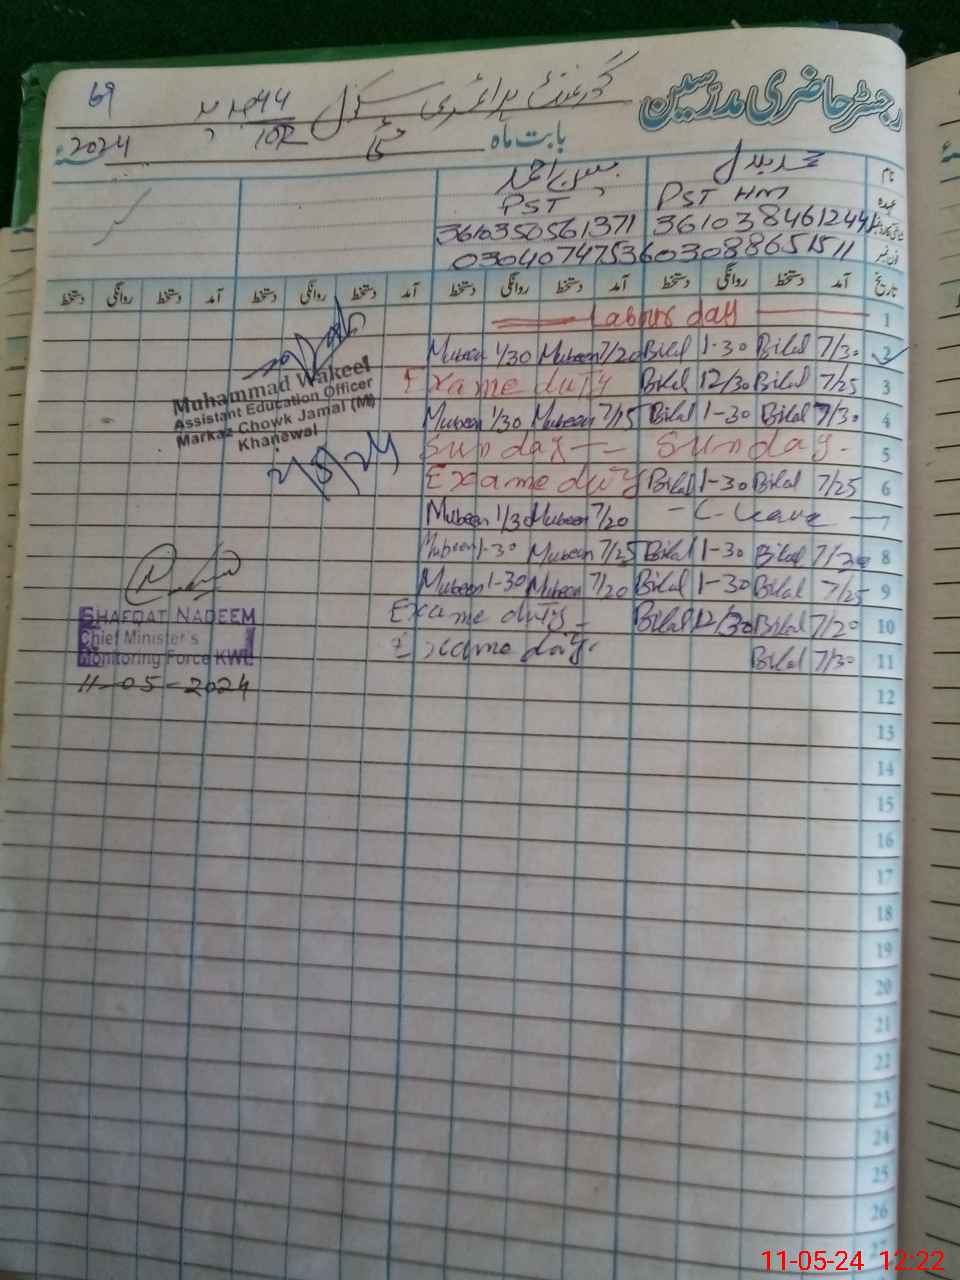 رجسٹر حاضری مدرسین گورنمنٹ پرائمری سکول 44 69
10R
بابت ماہ مئی 2024ء
نام محمد بلال احمد
عہدہ PST HM PST
3610350561371
فون نمبر
تاریخ آمد دستخط روانگی دستخط آمد دستخط روانگی دستخط آمد دستخط روانگی دستخط آمد دستخط روانگی دستخط
Labour day 1
Mubeen 1/30 Mubeen 7/20 Bilal 1-30 Bilal 7/30 2
Exame duty Bilal 12/30 Bilal 7/25 3
Mubeen 1/30 Mubeen 7/15 Bilal 1-30 Bilal 7/30 4
Sunday - Sunday - 5
Exame duty Bilal 1-30 Bilal 7/25 6
Mubeen 1/30 Mubeen 7/20 - C. Leave - 7
Mubeen 1-30 Mubeen 7/25 Bilal 1-30 Bilal 7/20 8
Mubeen 1-30 Mubeen 7/20 Bilal 1-30 Bilal 7/25 9
Exame duty - Bilal 12/30 Bilal 7/20 10
Exame duty. Bilal 7/30 11
12
13
14
15
16
17
18
19
20
21
22
23
24
25
26
27
Muhammad Wakeel
Assistant Education Officer
Markaz Chowk Jamal (M)
Khanewal
2/5/24
SHAFQAT NADEEM
Chief Minister's
Monitoring Force KWL
11-05-2024
11-05-24 12:22